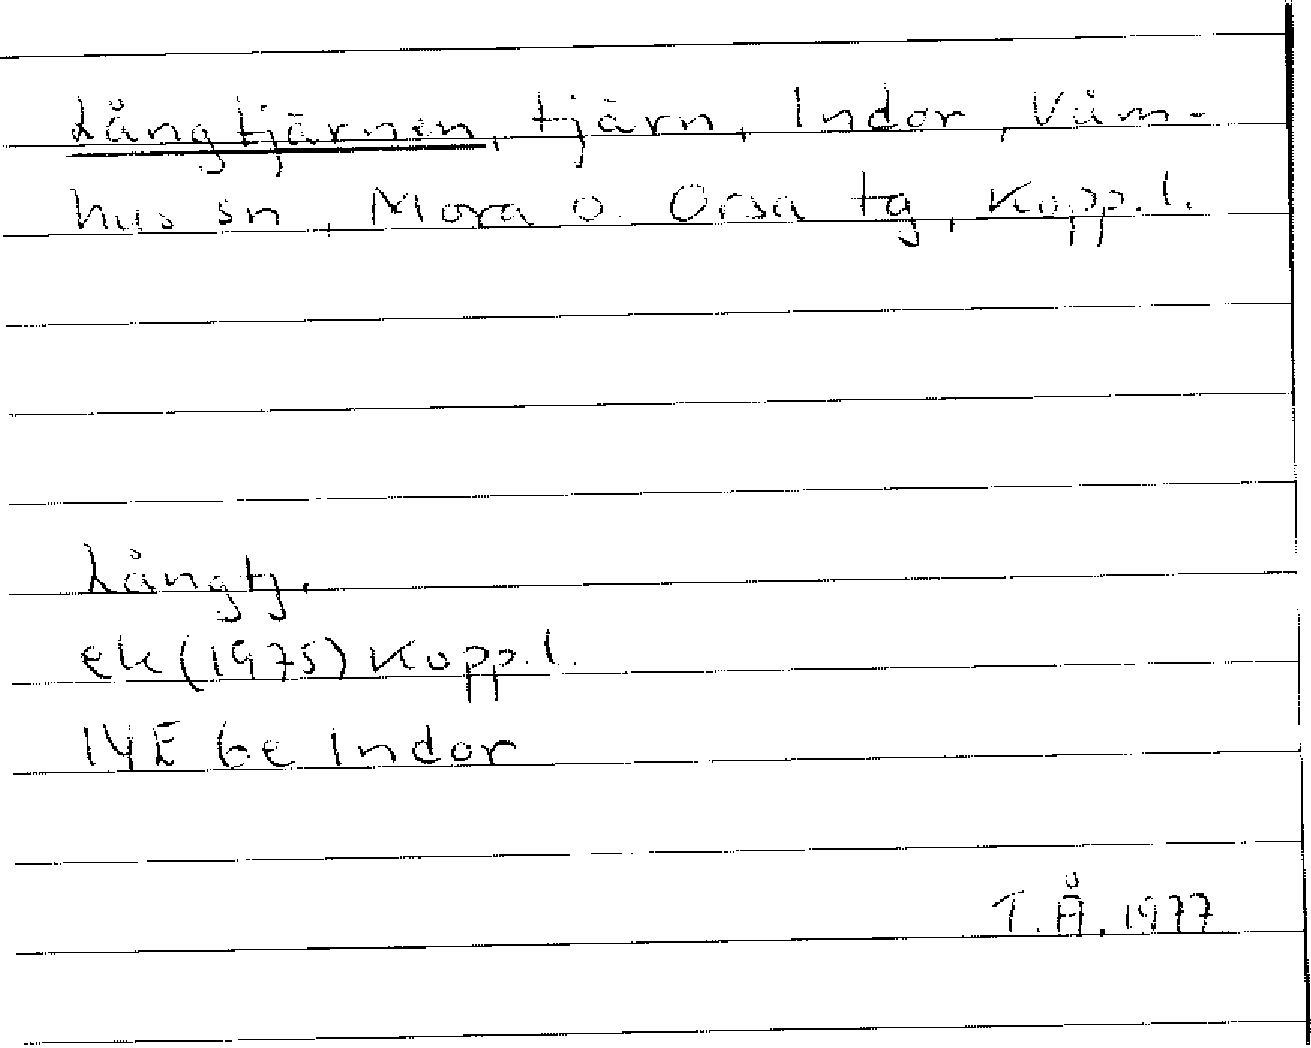 Långtjärnen, tjärn, Indor, Våm-
hus sn, Mora o. Orsa tg, Kopp. l.
Långtj.
ek (1975) Kopp. l.
14E 6e Indor
T. Å. 1977